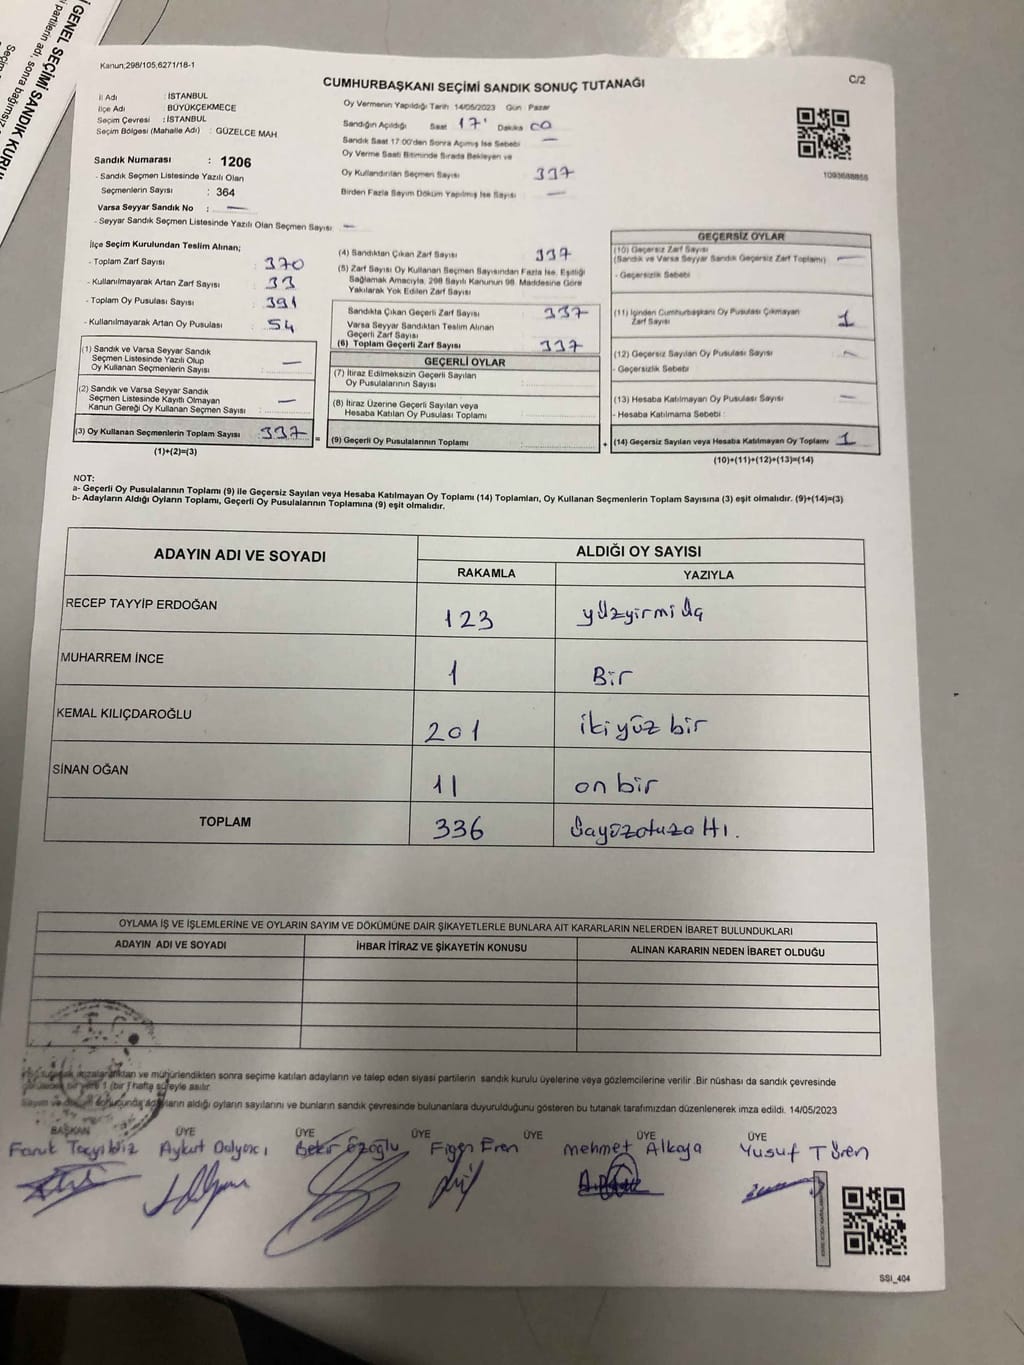 GENEL SEÇİMİ SANDIK KURU
partilerin adı, sonra bağımsız
Kanun,298/105,6271/18-1
C/2
CUMHURBAŞKANI SEÇİMİ SANDIK SONUÇ TUTANAĞI
İl Adı : İSTANBUL
İlçe Adı : BÜYÜKÇEKMECE
Seçim Çevresi : İSTANBUL
Seçim Bölgesi (Mahalle Adı) : GÜZELCE MAH.
Sandık Numarası : 1206
- Sandık Seçmen Listesinde Yazılı Olan
Seçmenlerin Sayısı : 364
Varsa Seyyar Sandık No : —
- Seyyar Sandık Seçmen Listesinde Yazılı Olan Seçmen Sayısı: —
Oy Vermenin Yapıldığı Tarih 14/05/2023 Gün : Pazar
Sandığın Açıldığı Saat 17' Dakika 00
Sandık Saat 17:00'den Sonra Açılmış İse Sebebi —
Oy Verme Saati Bitiminde Sırada Bekleyen ve
Oy Kullandırılan Seçmen Sayısı 337
Birden Fazla Sayım Döküm Yapılmış İse Sayısı —
1093688855
İlçe Seçim Kurulundan Teslim Alınan;
- Toplam Zarf Sayısı : 370
- Kullanılmayarak Artan Zarf Sayısı : 33
- Toplam Oy Pusulası Sayısı : 391
- Kullanılmayarak Artan Oy Pusulası : 54
(1) Sandık ve Varsa Seyyar Sandık
Seçmen Listesinde Yazılı Olup
Oy Kullanan Seçmenlerin Sayısı : —
(2) Sandık ve Varsa Seyyar Sandık
Seçmen Listesinde Kayıtlı Olmayan
Kanun Gereği Oy Kullanan Seçmen Sayısı : —
(3) Oy Kullanan Seçmenlerin Toplam Sayısı 337 =
(1)+(2)=(3)
(4) Sandıktan Çıkan Zarf Sayısı : 337
(5) Zarf Sayısı Oy Kullanan Seçmen Sayısından Fazla İse, Eşitliği
Sağlamak Amacıyla, 298 Sayılı Kanunun 98. Maddesine Göre
Yakılarak Yok Edilen Zarf Sayısı
Sandıkta Çıkan Geçerli Zarf Sayısı : 337
Varsa Seyyar Sandıktan Teslim Alınan
Geçerli Zarf Sayısı
(6) Toplam Geçerli Zarf Sayısı : 337
GEÇERLİ OYLAR
(7) İtiraz Edilmeksizin Geçerli Sayılan
Oy Pusulalarının Sayısı :
(8) İtiraz Üzerine Geçerli Sayılan veya
Hesaba Katılan Oy Pusulası Toplamı :
(9) Geçerli Oy Pusulalarının Toplamı : +
GEÇERSİZ OYLAR
(10) Geçersiz Zarf Sayısı
(Sandık ve Varsa Seyyar Sandık Geçersiz Zarf Toplamı) —
- Geçersizlik Sebebi
(11) İçinden Cumhurbaşkanı Oy Pusulası Çıkmayan
Zarf Sayısı 1
(12) Geçersiz Sayılan Oy Pusulası Sayısı —
- Geçersizlik Sebebi
(13) Hesaba Katılmayan Oy Pusulası Sayısı —
- Hesaba Katılmama Sebebi :
(14) Geçersiz Sayılan veya Hesaba Katılmayan Oy Toplamı 1
(10)+(11)+(12)+(13)=(14)
NOT:
a- Geçerli Oy Pusulalarının Toplamı (9) ile Geçersiz Sayılan veya Hesaba Katılmayan Oy Toplamı (14) Toplamları, Oy Kullanan Seçmenlerin Toplam Sayısına (3) eşit olmalıdır. (9)+(14)=(3)
b- Adayların Aldığı Oyların Toplamı, Geçerli Oy Pusulalarının Toplamına (9) eşit olmalıdır.
ADAYIN ADI VE SOYADI
ALDIĞI OY SAYISI
RAKAMLA YAZIYLA
RECEP TAYYİP ERDOĞAN 123 yüzyirmi üç
MUHARREM İNCE 1 Bir
KEMAL KILIÇDAROĞLU 201 iki yüz bir
SİNAN OĞAN 11 on bir
TOPLAM 336
OYLAMA İŞ VE İŞLEMLERİNE VE OYLARIN SAYIM VE DÖKÜMÜNE DAİR ŞİKAYETLERLE BUNLARA AİT KARARLARIN NELERDEN İBARET BULUNDUKLARI
ADAYIN ADI VE SOYADI İHBAR İTİRAZ VE ŞİKAYETİN KONUSU ALINAN KARARIN NEDEN İBARET OLDUĞU
T.C.
imzalandıktan ve mühürlendikten sonra seçime katılan adayların ve talep eden siyasi partilerin sandık kurulu üyelerine veya gözlemcilerine verilir .Bir nüshası da sandık çevresinde
bir yere 1 (bir) hafta süreyle asılır.
Sayım ve döküm sonucunda adayların aldığı oyların sayılarını ve bunların sandık çevresinde bulunanlara duyurulduğunu gösteren bu tutanak tarafımızdan düzenlenerek imza edildi. 14/05/2023
BAŞKAN ÜYE ÜYE ÜYE ÜYE ÜYE ÜYE
Faruk Aykut Bekir Özoğlu Figen Eren Mehmet Alkaya Yusuf Tören
SSI_404